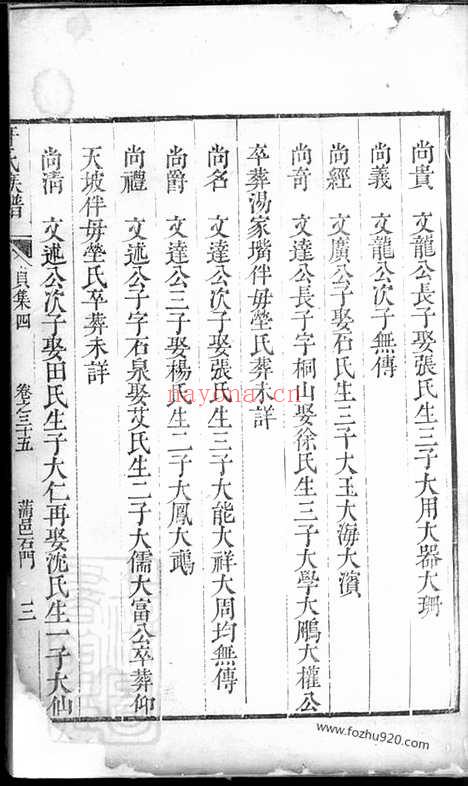 尚貴 文龍公長子娶張氏生三子大用大器大珊
尚義 文龍公次子無傳
尚經 文廣公子娶石氏生三子大玉大海大濱
尚奇 文達公長子字桐山娶徐氏生三子大學大鵬大權公
卒葬湯家嘴伴母塋氏葬未詳
尚名 文達公次子娶張氏生三子大能大祥大周均無傳
尚爵 文達公三子娶楊氏生二子大鳳大鵡
尚禮 文述公子字石泉娶艾氏生二子大儒大富公卒葬仰
天坡伴母塋氏卒葬未詳
尚清 文述公次子娶田氏生子大仁再娶沈氏生一子大仙
氏族譜 貞集四 卷之三十五 蒲邑石門 三
nayona.cn
www.fozhu920.com